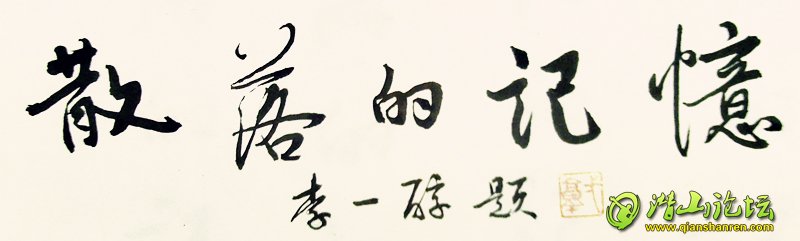 散落的记憶
李一醇题
潜山论坛
www.qianshanren.com